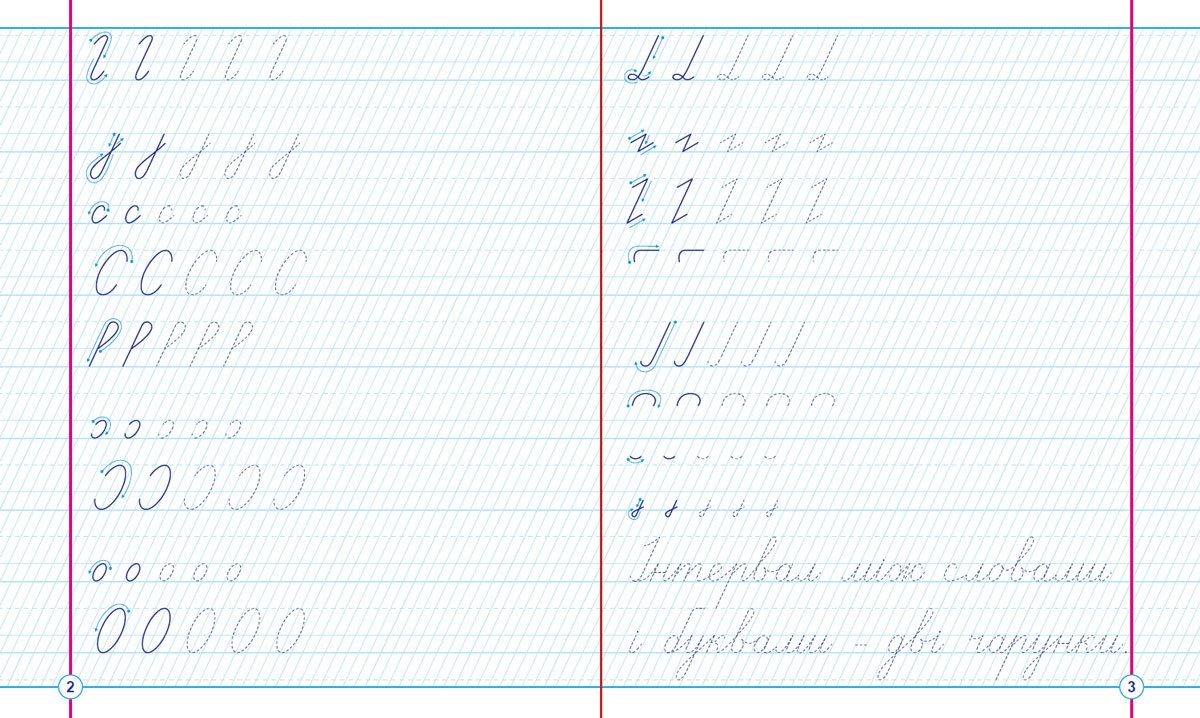 с с с с с
С С С С С
Р Р Р Р Р
о о о о о
О О О О О
2
Інтервал між словами
і буквами – дві чарунки.
3